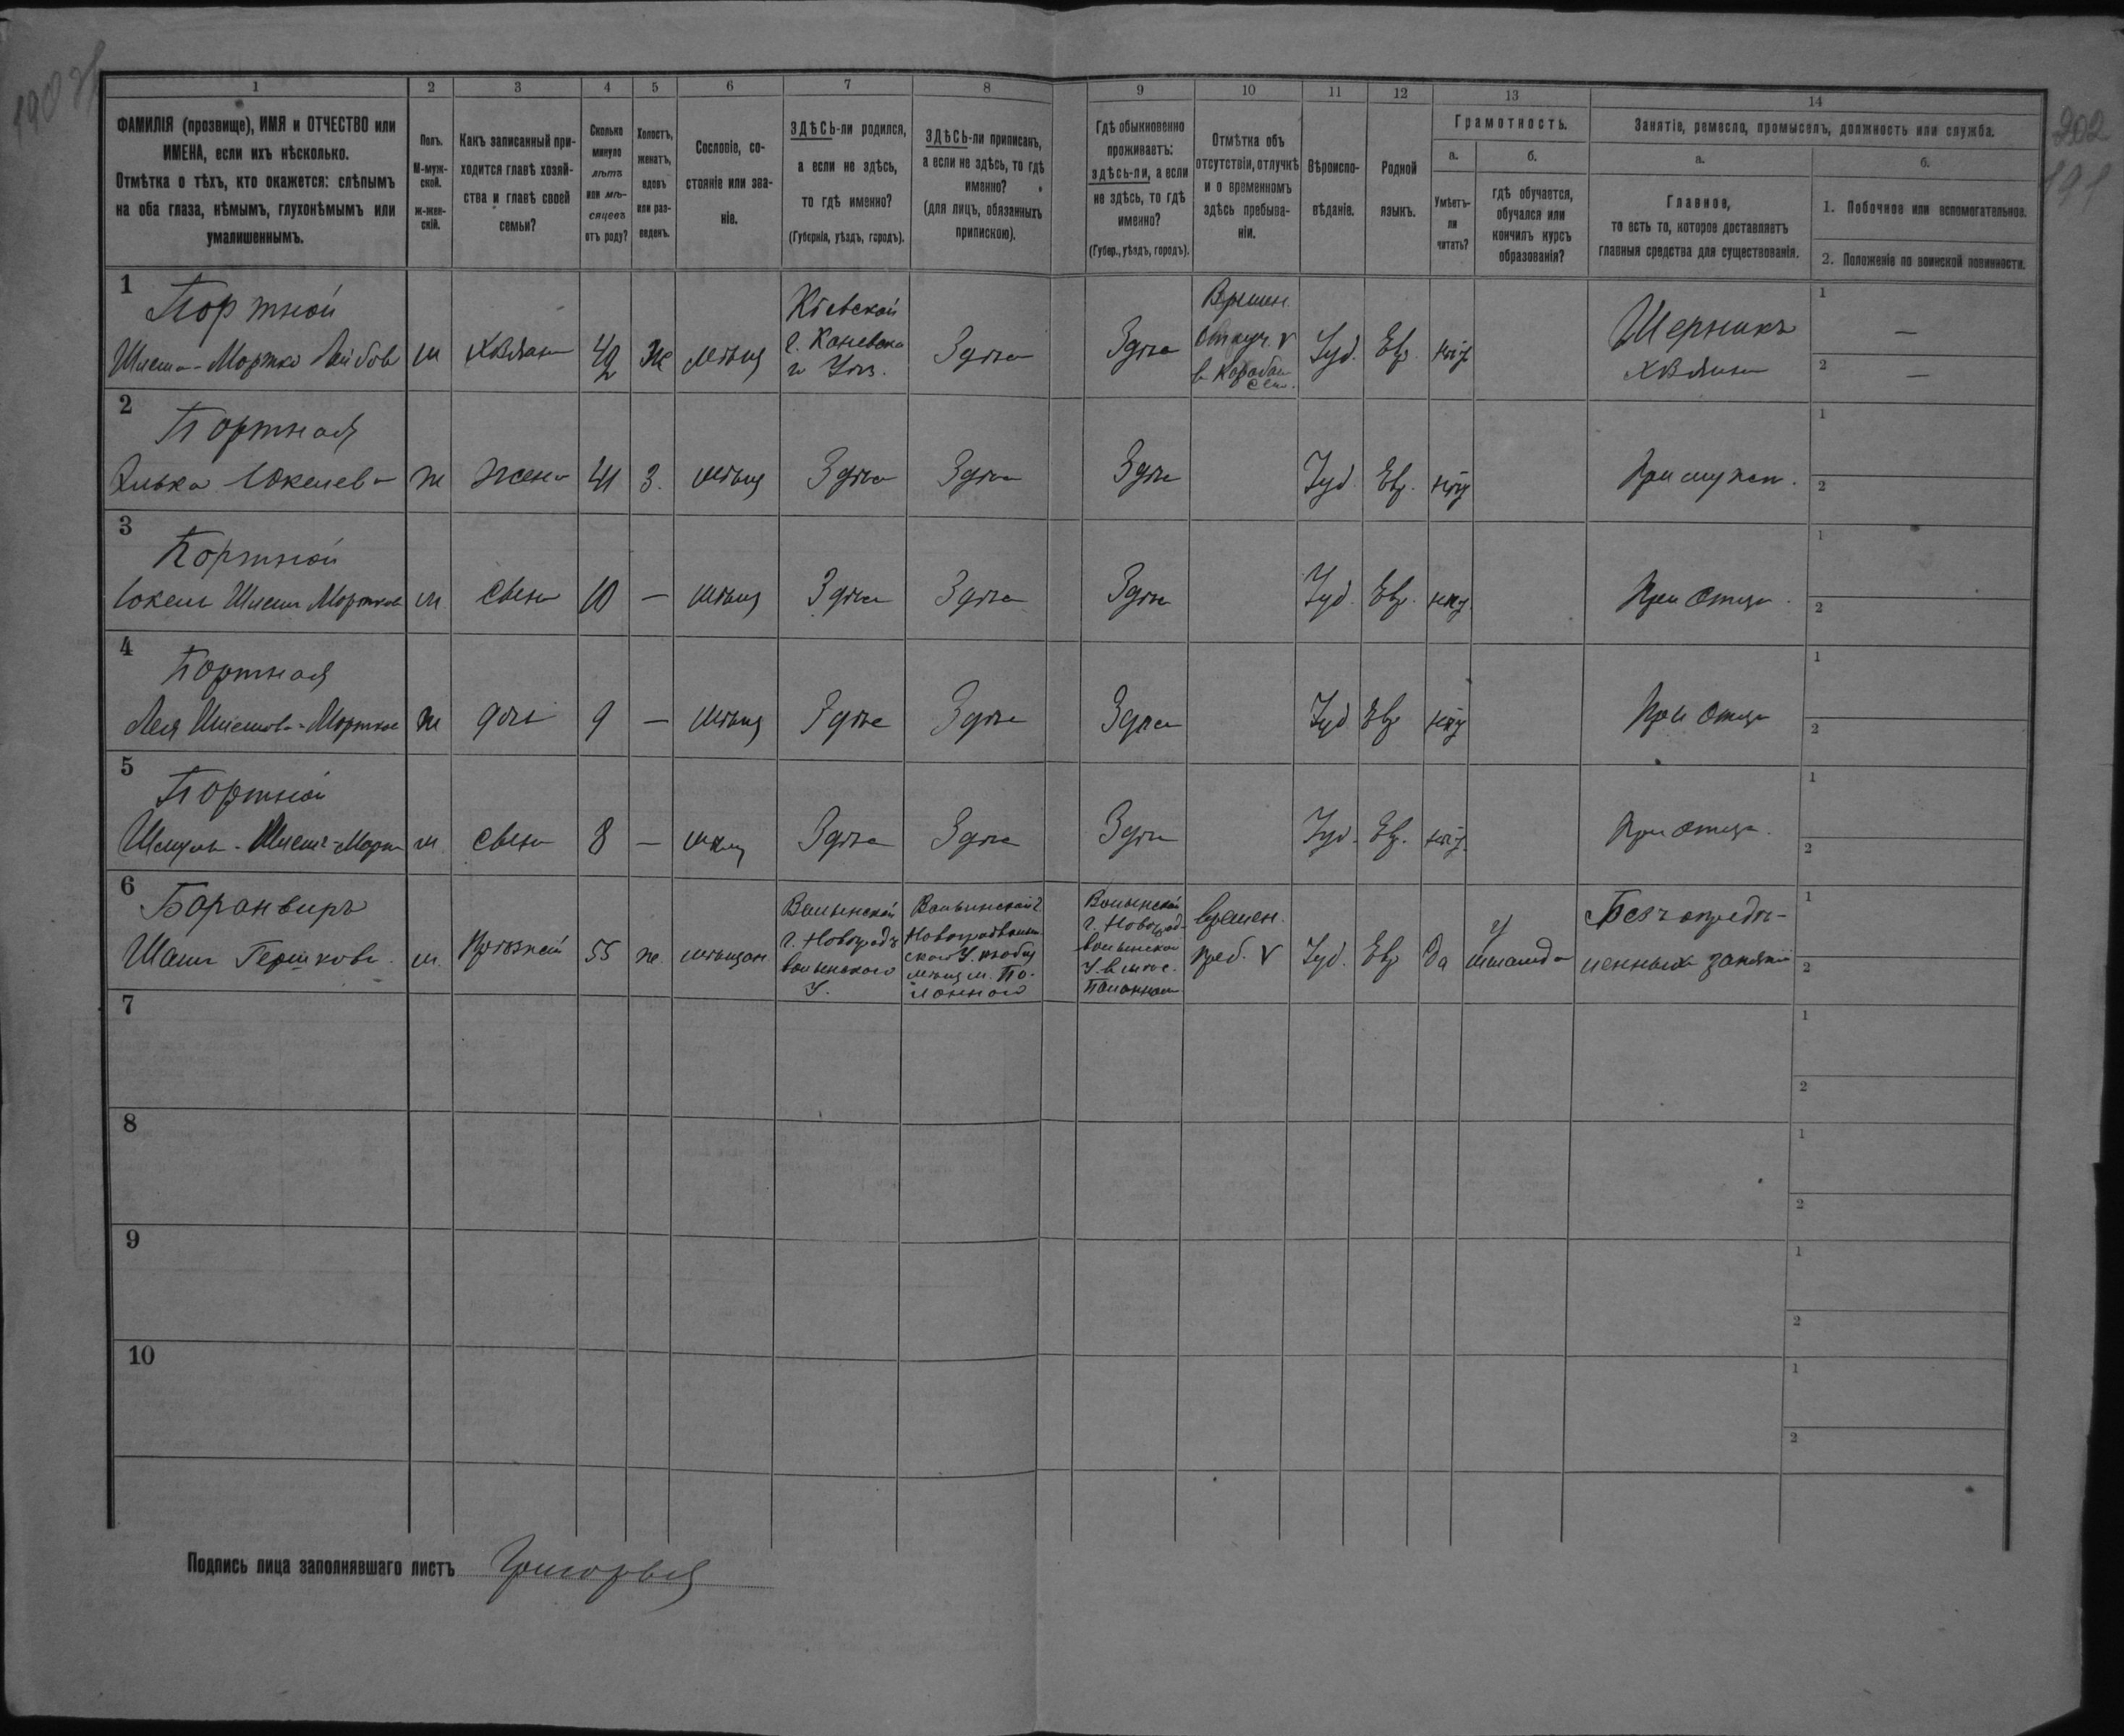 190 об
202
191
1 2 3 4 5 6 7 8 9 10 11 12 13 14
ФАМИЛІЯ (прозвище), ИМЯ и ОТЧЕСТВО или
ИМЕНА, если ихъ нѣсколько.
Отмѣтка о тѣхъ, кто окажется: слѣпымъ
на оба глаза, нѣмымъ, глухонѣмымъ или
умалишеннымъ.
Полъ.
М-муж-
ской.
ж-жен-
скій.
Какъ записанный при-
ходится главѣ хозяй-
ства и главѣ своей
семьи?
Сколько
минуло
лѣтъ
или мѣ-
сяцевъ
отъ роду?
Холостъ,
женатъ,
вдовъ
или раз-
веденъ.
Сословіе, со-
стояніе или зва-
ніе.
ЗДѢСЬ-ли родился,
а если не здѣсь,
то гдѣ именно?
(Губернія, уѣздъ, городъ).
ЗДѢСЬ-ли приписанъ,
а если не здѣсь, то гдѣ
именно?
(для лицъ, обязанныхъ
припискою).
Гдѣ обыкновенно
проживаетъ:
здѣсь-ли, а если
не здѣсь, то гдѣ
именно?
(Губер., уѣздъ, городъ).
Отмѣтка объ
отсутствіи, отлучкѣ
и о временномъ
здѣсь пребыва-
ніи.
Вѣроиспо-
вѣданіе.
Родной
языкъ.
Грамотность.
а.
Умѣетъ-
ли
читать?
б.
гдѣ обучается,
обучался или
кончилъ курсъ
образованія?
Занятіе, ремесло, промыселъ, должность или служба.
а.
Главное,
то есть то, которое доставляетъ
главныя средства для существованія.
б.
1. Побочное или вспомогательное.
2. Положеніе по воинской повинности.
1
Портной
Мортко Лейбовъ м 42 Ж мѣщ Здѣсь Здѣсь Іуд. Евр. нѣт
Кіевской
г. Каневска
го Уѣз.
Времен.
отлуч. V
1 —
2 —
2
Портная
ж жена 41 З. мѣщ Здѣсь Здѣсь Здѣсь Іуд. Евр. нѣт При мужѣ.
1
2
3
Портной
м сынъ 10 — мѣщ Здѣсь Здѣсь Здѣсь Іуд. Евр. нѣт При отцѣ
1
2
4
Портная
Лея ж дочь 9 — мѣщ Здѣсь Здѣсь Здѣсь Іуд Евр нѣт При отцѣ
1
2
5
Портной
м сынъ 8 — мѣщ Здѣсь Здѣсь Здѣсь Іуд. Евр. нѣт При отцѣ.
1
2
6
Гершковъ м. 55 ж. мѣщан.
Волынской
г. Новоградъ
волынского
У.
Волынской г
Новоградволын-
ского У.
Волынской
г. Новоград-
волынскаго
времен.
преб. V
Іуд. Евр Да
у
меламда
Безъ опредѣ-
ленныхъ занятій
1
2
7
1
2
8
1
2
9
1
2
10
1
2
Подпись лица заполнявшаго листъ